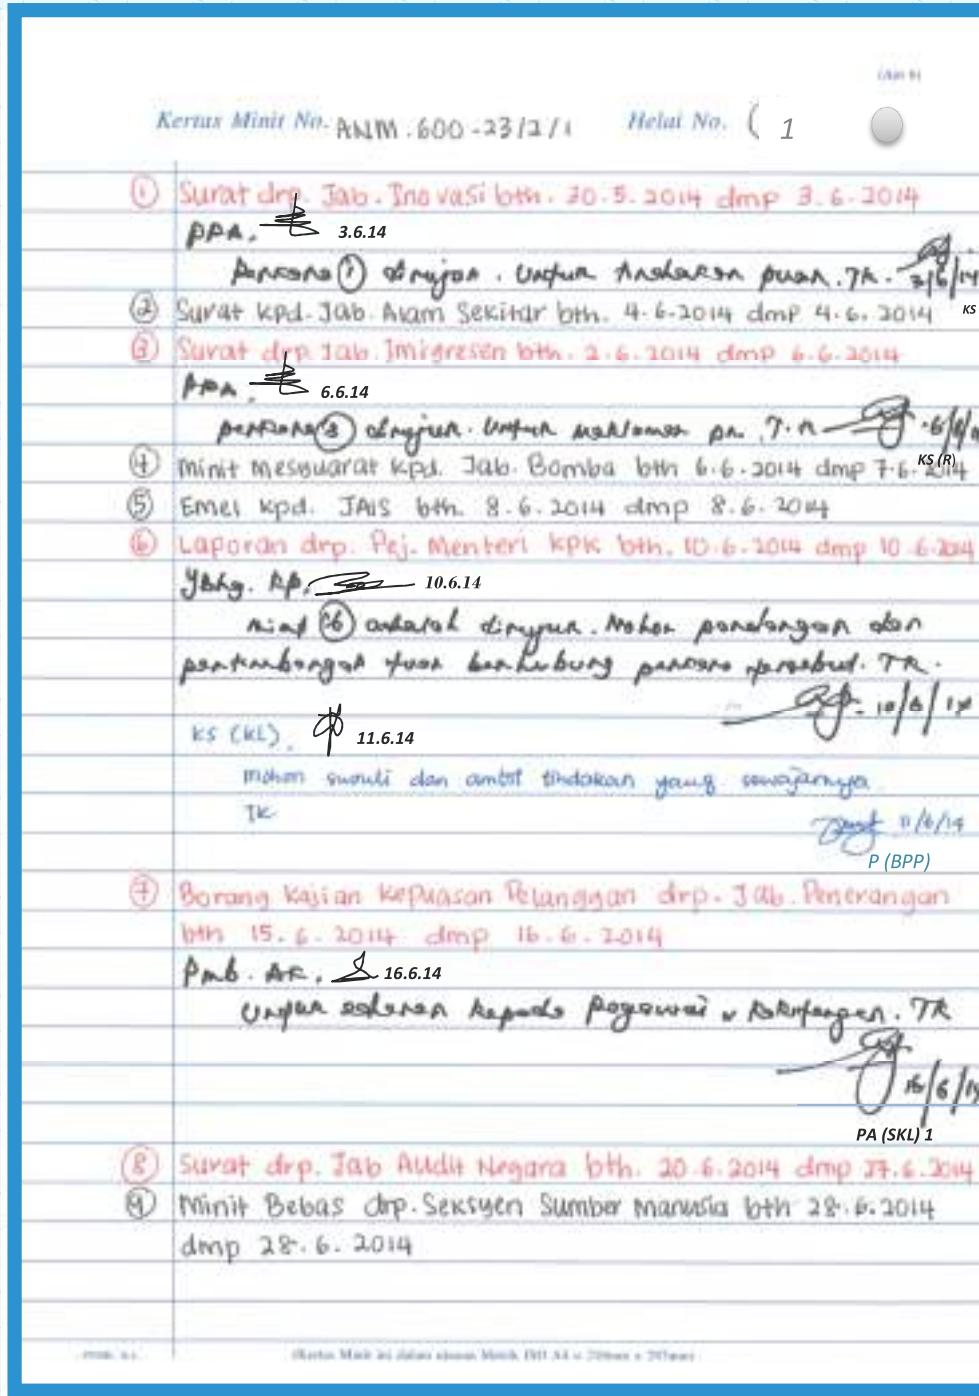 (Am 6)
Kertas Minit No. ANM.600-23/2/1 Helai No. ( 1
① Surat drp. Jab. Inovasi bth. 30.5.2014 dmp 3.6.2014
PPA. 3.6.14
Perkara ① dirujuk. Untuk tindakan puan. TK. 3/6/14
KS
② Surat kpd. Jab. Alam Sekitar bth. 4.6.2014 dmp 4.6.2014
③ Surat drp. Jab. Imigresen bth. 2.6.2014 dmp 6.6.2014
PPA. 6.6.14
perkara ③ dirujuk. Untuk makluman pn. T.K
KS (R)
④ Minit Mesyuarat kpd. Jab. Bomba bth 6.6.2014 dmp 7.6.2014
⑤ Emel kpd. JAIS bth. 8.6.2014 dmp 8.6.2014
⑥ Laporan drp. Pej. Menteri KPK bth. 10.6.2014 dmp 10.6.2014
YBhg. KP. 10.6.14
minit ⑥ adalah dirujuk. Mohon pandangan dan
pertimbangan tuan berhubung perkara tersebut. TK.
10/6/14
KS (KL). 11.6.14
mohon susuli dan ambil tindakan yang sewajarnya.
TK
11/6/14
P (BPP)
⑦ Borang Kajian Kepuasan Pelanggan drp. Jab. Penerangan
bth 15.6.2014 dmp 16.6.2014
Pmb. AK. 16.6.14
Untuk edaran kepada Pegawai & Kakitangan. TK
16/6/14
PA (SKL) 1
⑧ Surat drp. Jab Audit Negara bth. 20.6.2014 dmp 27.6.2014
⑨ Minit Bebas drp. Seksyen Sumber Manusia bth 28.6.2014
dmp 28.6.2014
(Kertas Minit ini dalam ukuran Metrik ISO A4 = 210mm x 297mm)